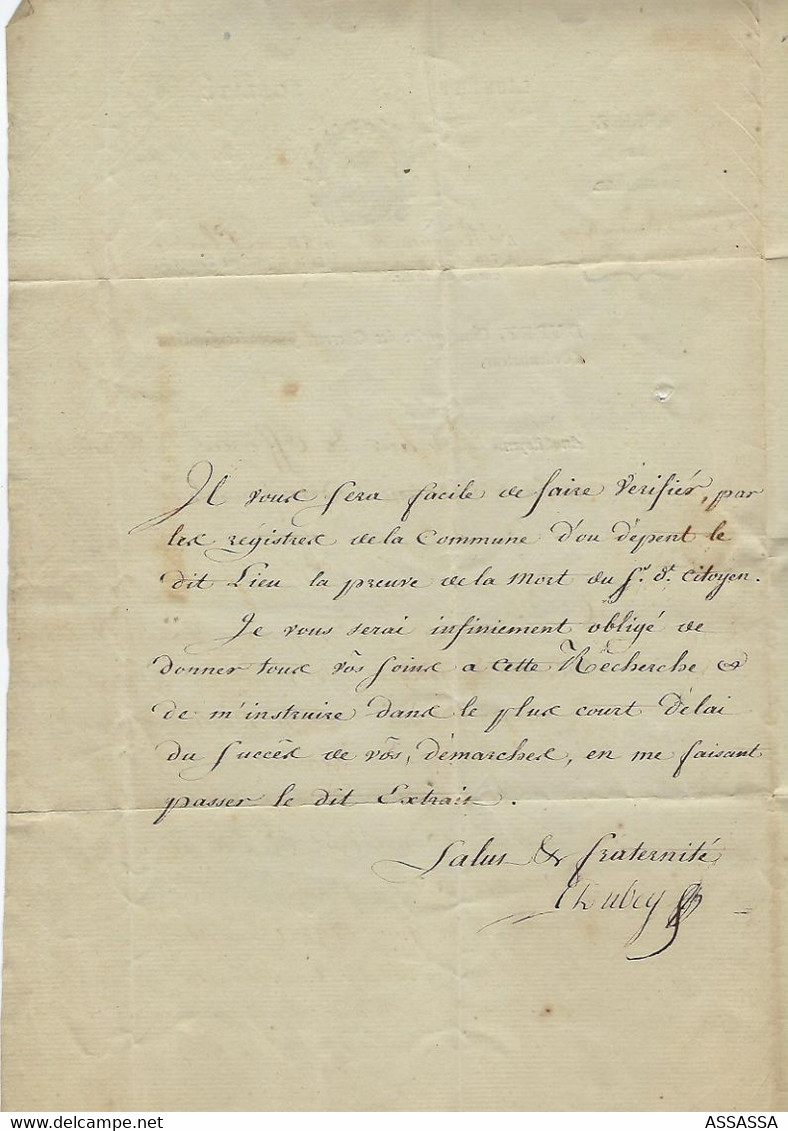 Il vous sera facile de faire vérifiér, par
les régistres de la Commune d'ou dépent le
dit Lieu la preuve de la Mort du Sr. dt. Citoyen.
Je vous serai infiniement obligé de
donner tous vôs soins a cette Récherche &
de m'instruire dans le plus court Délai
du succès de vôs, démarches, en me faisant
passer le dit Extrait.
Salut & fraternité
Dubey
ASSASSA